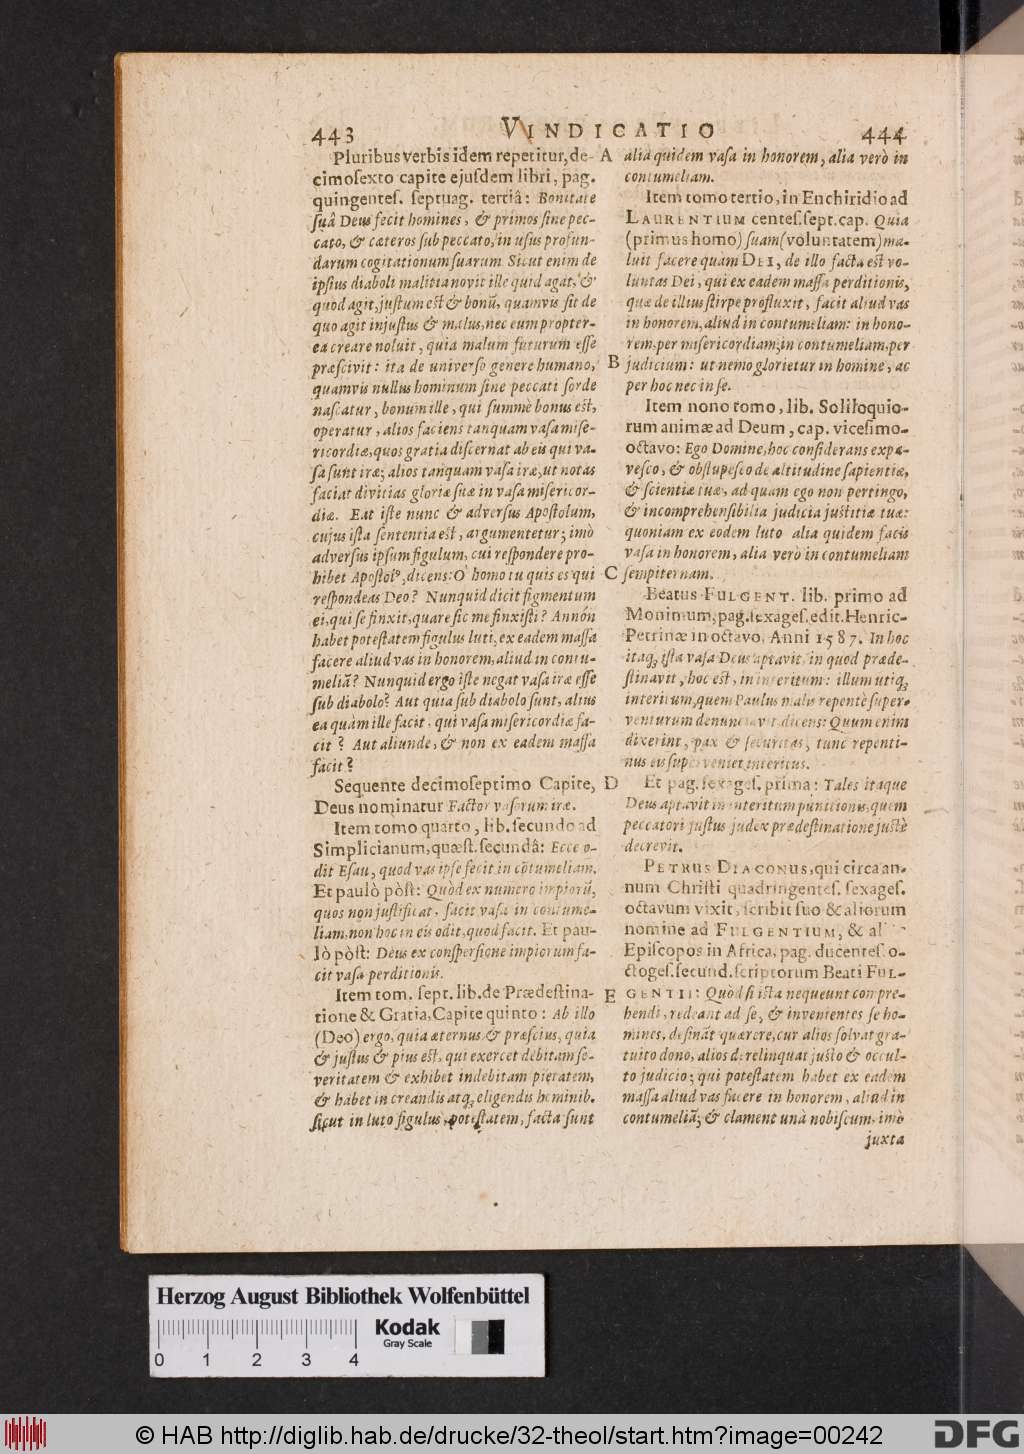 443 VINDICATIO 444
Pluribus verbis idem repetitur, de-
cimosexto capite ejusdem libri, pag.
quingentes. septuag. tertiâ: Bonitate
suâ Deus fecit homines, & primos sine pec-
cato, & cæteros sub peccato, in usus profun-
darum cogitationum suarum Sicut enim de
ipsius diaboli malitia novit ille quid agat, &
quod agit, justum est & bonū, quamvis sit de
quo agit injustus & malus, nec eum propter-
ea creare noluit, quia malum futurum esse
præscivit: ita de universo genere humano,
quamvis nullus hominum sine peccati sorde
nascatur, bonum ille, qui summè bonus est,
operatur, alios faciens tanquam vasa mise-
ricordiæ, quos gratia discernat ab eis qui va-
sa sunt iræ; alios tanquam vasa iræ, ut notas
faciat divitias gloriæ suæ in vasa misericor-
diæ. Eat iste nunc & adversus Apostolum,
cujus ista sententia est, argumentetur; imò
adversus ipsum figulum, cui respondere pro-
hibet Apostolꝰ, dicens: O homo tu quis es qui
respondeas Deo? Nunquid dicit figmentum
ei, qui se finxit, quare sic me finxisti? Annón
habet potestatem figulus luti, ex eadem massa
facere aliud vas in honorem, aliud in contu-
meliā? Nunquid ergo iste negat vasa iræ esse
sub diabolo? Aut quia sub diabolo sunt, alius
ea quàm ille facit, qui vasa misericordiæ fa-
cit? Aut aliunde, & non ex eadem massa
facit?
Sequente decimoseptimo Capite,
Deus nominatur Factor vasorum iræ.
Item tomo quarto, lib. secundo ad
Simplicianum, quæst. secundâ: Ecce o-
dit Esau, quod vas ipse fecit in cōtumeliam.
Et paulò pòst: Quòd ex numero impiorū,
quos non justificat, facit vasa in contume-
liam, non hoc in eis odit, quod facit. Et pau-
lò pòst: Deus ex conspersione impiorum fa-
cit vasa perditionis.
Item tom. sept. lib. de Prædestina-
tione & Gratia, Capite quinto: Ab illo
(Deo) ergo, quia æternus & præscius, quia
& justus & pius est, qui exercet debitam se-
veritatem & exhibet indebitam pietatem,
& habet in creandis atq; eligendis hominib.
sicut in luto figulus, potestatem, facta sunt
A
B
C
D
E
alia quidem vasa in honorem, alia verò in
contumeliam.
Item tomo tertio, in Enchiridio ad
LAURENTIUM centes. sept. cap. Quia
(primus homo) suam (voluntatem) ma-
luit facere quàm DEI, de illo facta est vo-
luntas Dei, qui ex eadem massa perditionis,
quæ de illius stirpe profluxit, facit aliud vas
in honorem, aliud in contumeliam: in hono-
rem, per misericordiam; in contumeliam, per
judicium: ut nemo glorietur in homine, ac
per hoc nec in se.
Item nono tomo, lib. Soliloquio-
rum animæ ad Deum, cap. vicesimo-
octavo: Ego Domine, hoc considerans expa-
vesco, & obstupesco de altitudine sapientiæ,
& scientiæ tuæ, ad quam ego non pertingo,
& incomprehensibilia judicia justitiæ tuæ:
quoniam ex eodem luto alia quidem facis
vasa in honorem, alia verò in contumeliam
sempiternam.
Beatus FULGENT. lib. primo ad
Monimum, pag. sexages. edit. Henric-
Petrinæ in octavo, Anni 1587. In hoc
itaq; ista vasa Deus aptavit, in quod præde-
stinavit, hoc est, in interitum: illum utiq;
interitum, quem Paulus malis repentè super-
venturum denunciavit, dicens: Quum enim
dixerint, pax & securitas, tunc repenti-
nus eis superveniet interitus.
Et pag. sexages. prima: Tales itaque
Deus aptavit in interitum punitionis, quem
peccatori justus judex prædestinatione justè
decrevit.
PETRUS DIACONUS, qui circa an-
num Christi quadringentes. sexages.
octavum vixit, scribit suo & aliorum
nomine ad FULGENTIUM, & al
Episcopos in Africa, pag. ducentes. o-
ctoges. secund. scriptorum Beati FUL-
GENTII: Quòd si ista nequeunt compre-
hendi, redeant ad se, & invenientes se ho-
mines, desināt quærere, cur alios solvat gra-
tuito dono, alios derelinquat justo & occul-
to judicio; qui potestatem habet ex eadem
massa aliud vas facere in honorem, aliud in
contumeliā; & clament unà nobiscum, imò
juxta
Herzog August Bibliothek Wolfenbüttel
Kodak
Gray Scale
0 1 2 3 4
© HAB http://diglib.hab.de/drucke/32-theol/start.htm?image=00242
DFG